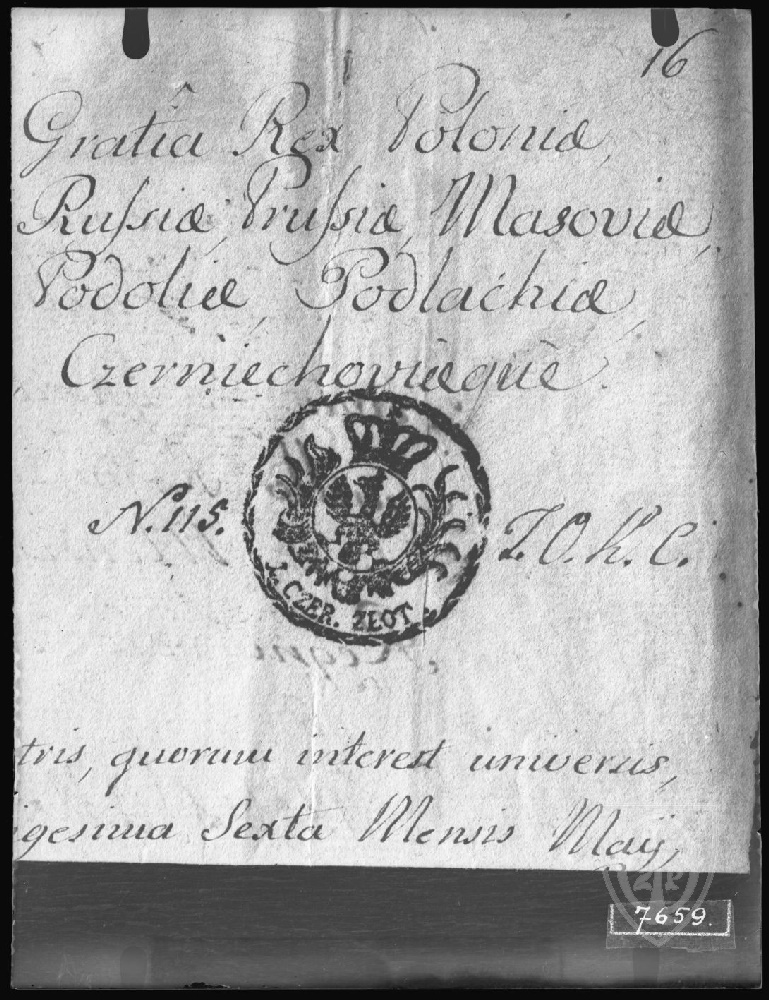 16
Gratia Rex Poloniæ,
Rufsiæ, Prufsiæ, Masoviæ,
Podoliæ, Podlachiæ,
Czerniechoviæque.
N. 115.
1. CZER. ZŁOT.
Z.O.K.C.
tris, quorum interest universis,
igesima Sexta Mensis Maÿ,
7659.